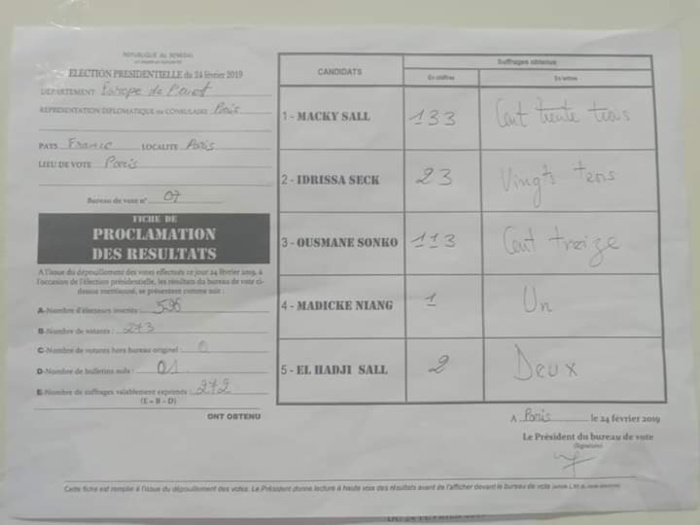 REPUBLIQUE DU SENEGAL
ELECTION PRESIDENTIELLE du 24 février 2019
DÉPARTEMENT Europe de l'ouest
REPRÉSENTATION DIPLOMATIQUE OU CONSULAIRE Paris
PAYS France LOCALITE Paris
LIEU DE VOTE Paris
Bureau de vote n° 07
FICHE DE
PROCLAMATION
DES RESULTATS
A l'issue du dépouillement des votes effectués ce jour 24 février 2019, à
l'occasion de l'élection présidentielle, les résultats du bureau de vote ci-
dessus mentionné, se présentent comme suit :
A-Nombre d'électeurs inscrits : 596
B-Nombre de votants : 273
C-Nombre de votants hors bureau originel : 0
D-Nombre de bulletins nuls : 01
E-Nombre de suffrages valablement exprimés : 272
(E = B - D)
ONT OBTENU
CANDIDATS
Suffrages obtenus
En chiffres
En lettres
1 - MACKY SALL 133 Cent trente trois
2 - IDRISSA SECK 23 Vingts trois
3 - OUSMANE SONKO 113 Cent treize
4 - MADICKE NIANG 1 Un
5 - EL HADJI SALL 2 Deux
A Paris le 24 février 2019
Le Président du bureau de vote
(Signature)
Cette fiche est remplie à l'issue du dépouillement des votes. Le Président donne lecture à haute voix des résultats avant de l'afficher devant le bureau de vote